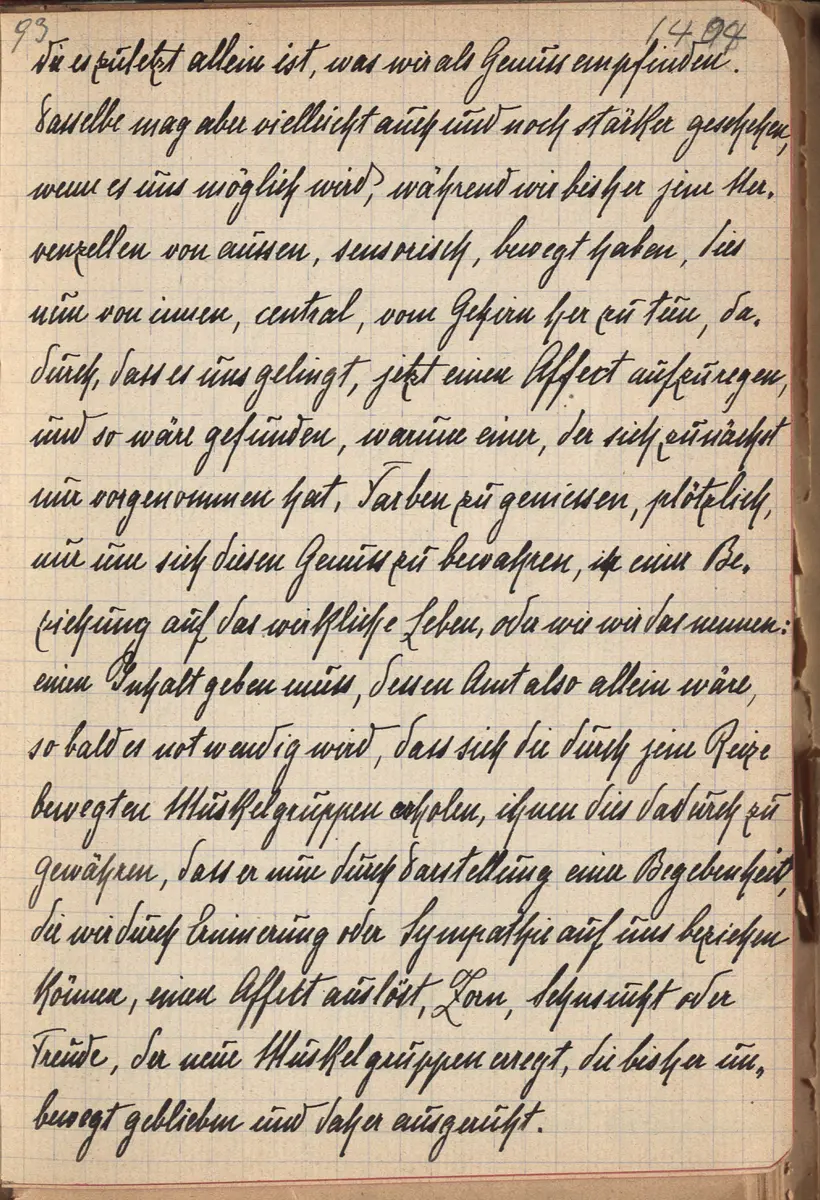 93
14.94
die es zuletzt allein ist, was wir als Genuss empfinden.
Dasselbe mag aber vielleicht auch und noch stärker geschehen,
wenn es uns möglich wird, während wir bisher jene Ner-
venzellen von aussen, sensorisch, bewegt haben, dies
nun von innen, central, vom Gehirn her zu tun, da-
durch, dass es uns gelingt, jetzt einen Affect aufzuregen,
und so wäre gefunden, warum einer, der sich zunächst
nur vorgenommen hat, Farben zu geniessen, plötzlich,
nur um sich diesen Genuss zu bewahren, ihr eine Be-
ziehung auf das wirkliche Leben, oder wie wir das nennen:
einen Inhalt geben muss, dessen Amt also allein wäre,
so bald es notwendig wird, dass sich die durch jene Reize
bewegten Muskelgruppen erholen, ihnen dies dadurch zu
gewähren, dass er nun durch Darstellung einer Begebenheit,
die wir durch Erinnerung oder Sympathie auf uns beziehen
können, einen Affect auslöst, Zorn, Sehnsucht oder
Freude, der neue Muskelgruppen erregt, die bisher un-
bewegt geblieben und daher ausgeruht.